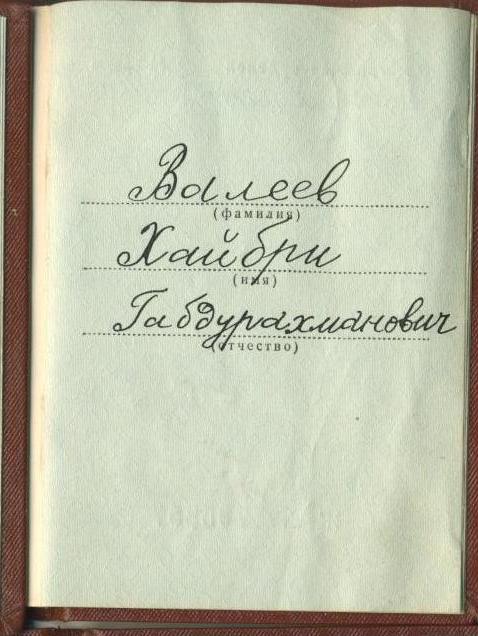 Валеев
(фамилия)
Хайбри
(имя)
Габдурахманович
(отчество)